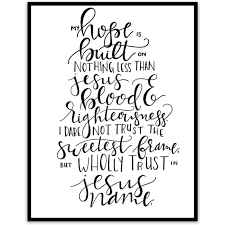 MY hope IS
built ON
NOTHING LESS THAN
jesus
blood &
righteousness
I DARE NOT TRUST THE
sweetest frame,
BUT WHOLLY TRUST IN
jesus
name.